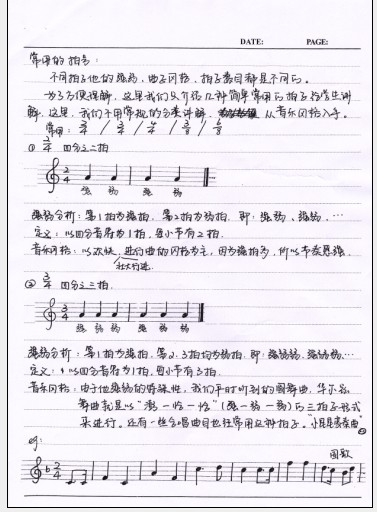 DATE: PAGE:
常用的拍子:
不同拍子他的强弱、曲子风格、拍子数目都是不同的。
为了方便理解,这里我们只介绍几种简单常用的拍子给学生讲
解,这里,我们不用常规的分类讲解, 从音乐风格入手。
常用: 2/4 / 3/4 / 4/4 / 3/8 / 6/8
① 2/4 四分之二拍
2/4
强 弱 强 弱
强弱分析: 第1拍为强拍, 第2拍为弱拍, 即: 强弱、强弱、…
定义: 以四分音符为1拍, 每小节有2拍.
音乐风格: 以欢快、进行曲的风格为主, 因为强拍多, 所以节奏感强.
② 3/4 四分之三拍.
3/4
强 弱 弱 强 弱 弱
强弱分析: 第1拍为强拍. 第2.3拍均为弱拍. 即: 强弱弱, 强弱弱…
定义: 以四分音符为1拍, 每小节有3拍.
音乐风格: 由于他强弱的特殊性, 我们平时听到的圆舞曲, 华尔兹
舞曲就是以"嘭一恰一恰"(强一弱一弱)的三拍子形式
来进行. 还有一些合唱曲目也经常用这种拍子.
eg: 国歌
2/4